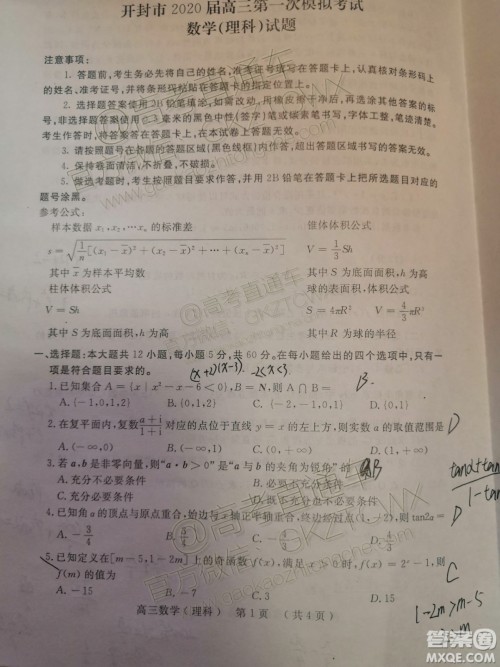 开封市 2020 届高三第一次模拟考试
数学(理科)试题
注意事项:
1. 答题前,考生务必先将自己的姓名、准考证号填写在答题卡上,认真核对条形码上
的姓名、准考证号,并将条形码粘贴在答题卡上
2. 选择题答案使用 2B 铅笔填涂,如需改动,用橡皮擦干净后,再选涂其他答案的标
号,非选择题答案使用 毫米的黑色中性(签字)笔或碳素笔书写,字体工整,笔迹清楚。
考生作答时,将答案答在答题卡上,在本试卷上答题无效。
3. 请按照题号在各题的答题区域(黑色线框)内作答,超出答题区域书写的答案无效。
4. 保持卷面清洁,不折叠,不破损。
5. 做选考题时,考生按照题目要求作答,并用 2B 铅笔在答题卡上把所选题目对应的题
号涂黑。
参考公式:
样本数据 x₁,x₂,⋯xₙ 的标准差 锥体体积公式
s=√(1/n[(x₁-x̄)²+(x₂-x̄)²+⋯+(xₙ-x̄)²]) V=1/3Sh
其中 x̄ 为样本平均数 其中 S 为底面面积,h 为高
柱体体积公式 球的表面积、体积公式
V=Sh S=4πR² V=4/3πR³
其中 S 为底面面积,h 为高 其中 R 为球的半径
一、选择题:本大题共 12 小题,每小题 5 分,共 60 分。在每小题给出的四个选项中,只有一
项是符合题目要求的。 -2<x<3
1.已知集合 A={x|x²-x-6<0},B=N,则 A∩B= B
A.{-1,0,1,2} B.{0,1,2} C.{-2,-1,0,1} D.{0,1}
2.在复平面内,复数(a+i)/(1+i)对应的点位于直线 y=x 的左上方,则实数 a 的取值范围是 D
A.(-∞,0) B.(-∞,1) C.(0,+∞) D.(1,+∞)
3.若 a,b 是非零向量,则“a·b>0”是“a 与 b 的夹角为锐角”的 B
A.充分不必要条件 B.必要不充分条件
C.充分必要条件 D.既不充分也不必要条件
4.已知角 α 的顶点与原点重合,始边与 x 轴正半轴重合,终边经过点(1,-2),则 tan2α= D
A.-3/4 B.4/3 C. D.
5.已知定义在[m-5,1-2m]上的奇函数 f(x),满足 x>0 时,f(x)=2ˣ-1,则
f(m)的值为 C
A.-15 B.-7 C.3 D.15
1-2m>m-5
高三数学(理科) 第 1 页 (共 4 页)
@高考直通车
GKZTCWX
答案圈
MXQE.COM